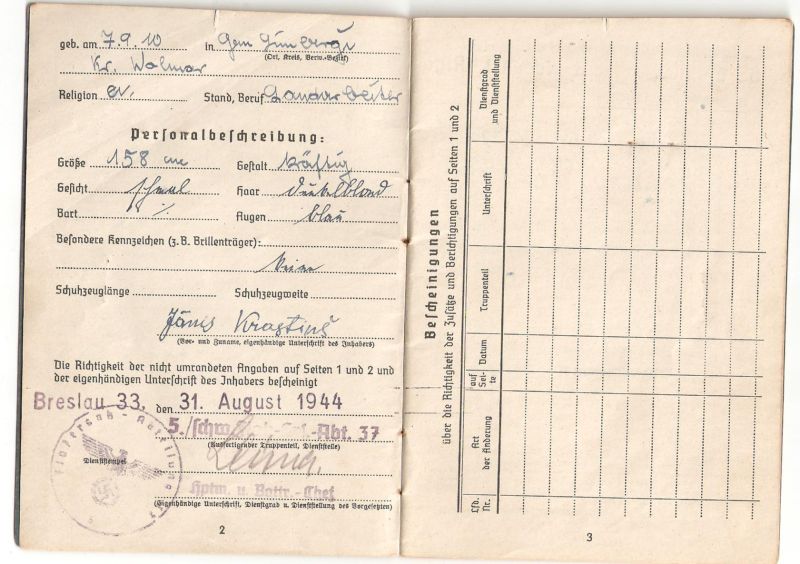 geb. am 7.9.10 in Gem
(Ort, Kreis, Verw.-Bezirk)
Kr. Wolmar
Religion ev. Stand, Beruf Landarbeiter
Personalbeschreibung:
Größe 158 cm Gestalt kräftig
Gesicht schmal Haar dunkelblond
Bart ·/. Augen blau
Besondere Kennzeichen (z. B. Brillenträger):
keine
Schuhzeuglänge Schuhzeugweite
Jānis Krastiņš
(Vor- und Zuname, eigenhändige Unterschrift des Inhabers)
Die Richtigkeit der nicht umrandeten Angaben auf Seiten 1 und 2 und
der eigenhändigen Unterschrift des Inhabers bescheinigt
Breslau 33, den 31. August 1944
5./schw. Abt. 37
(Ausfertigender Truppenteil, Dienststelle)
Dienststempel
Hptm. u. Battr.-Chef
(Eigenhändige Unterschrift, Dienstgrad u. Dienststellung des Vorgesetzten)
2
Bescheinigungen
über die Richtigkeit der Zusätze und Berichtigungen auf Seiten 1 und 2
Lfd. Nr.
Art der Änderung
auf Seite
Datum
Truppenteil
Unterschrift
Dienstgrad und Dienststellung
3